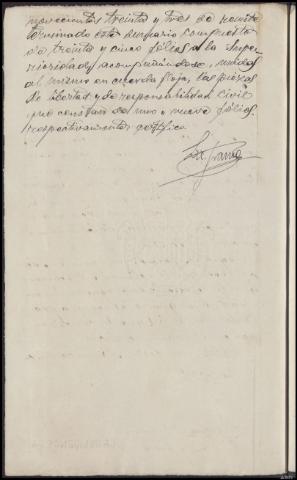 novecientos treinta y tres se remite
terminado este sumario compuesto
de treinta y cinco folios a la Supe-
rioridad, acompañandose, unidas
al mismo en cuerda floja, las piezas
de libertad y de responsabilidad civil
que constan de uno y nueve folios
respectivamente certifico